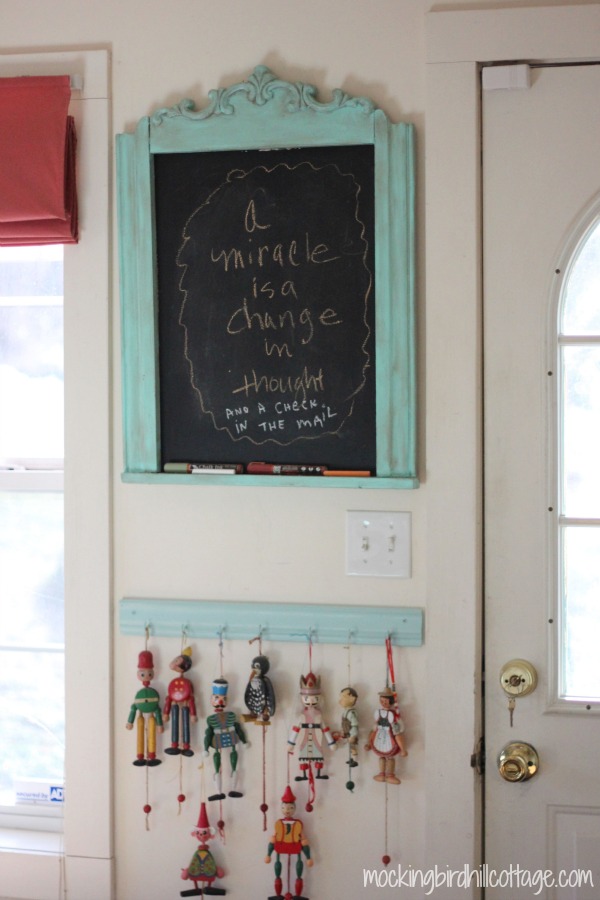 a
miracle
is a
change
in
thought
AND A CHECK
IN THE MAIL
secured by AD
mockingbirdhillcottage.com